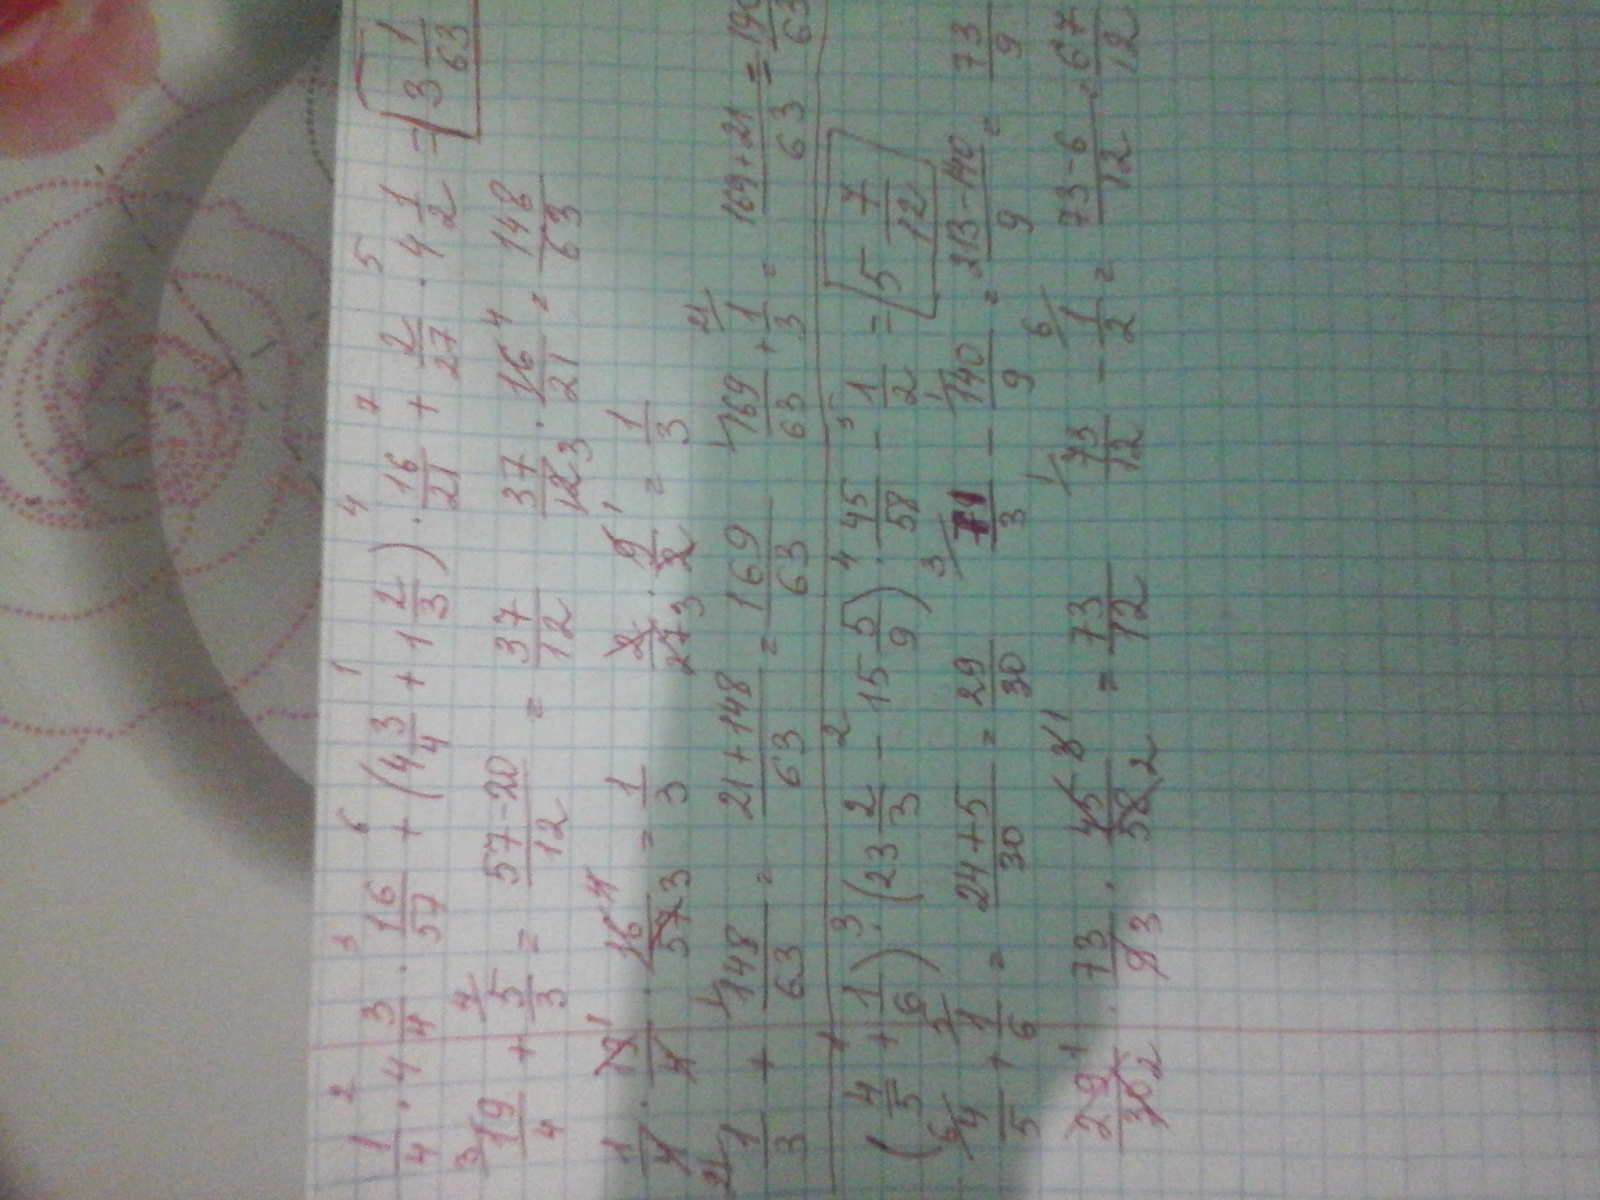 1/4 · 4 3/4 · 16/57 + (4 3/4 + 1 2/3) · 16/21 + 2/27 · 4 1/2 = 3 1/63
19/4 + 5/3 = 57-20/12 = 37/12 37/12 · 16/21 = 148/63
1/4 · 19/4 · 16/57 = 1/3 2/27 · 9/2 = 1/3
1/3 + 148/63 = 21+148/63 = 169/63 169/63 + 1/3 = 169+21/63 =
(4/5 + 1/6) · (23 2/3 - 15 5/9) · 45/58 - 1/2 = 5 7/12
4/5 + 1/6 = 24+5/30 = 29/30 71/3 - 140/9 = 213-140/9 = 73/9
29/30 · 73/9 · 45/58 = 73/12 73/12 - 1/2 = 73-6/12 = 67/12